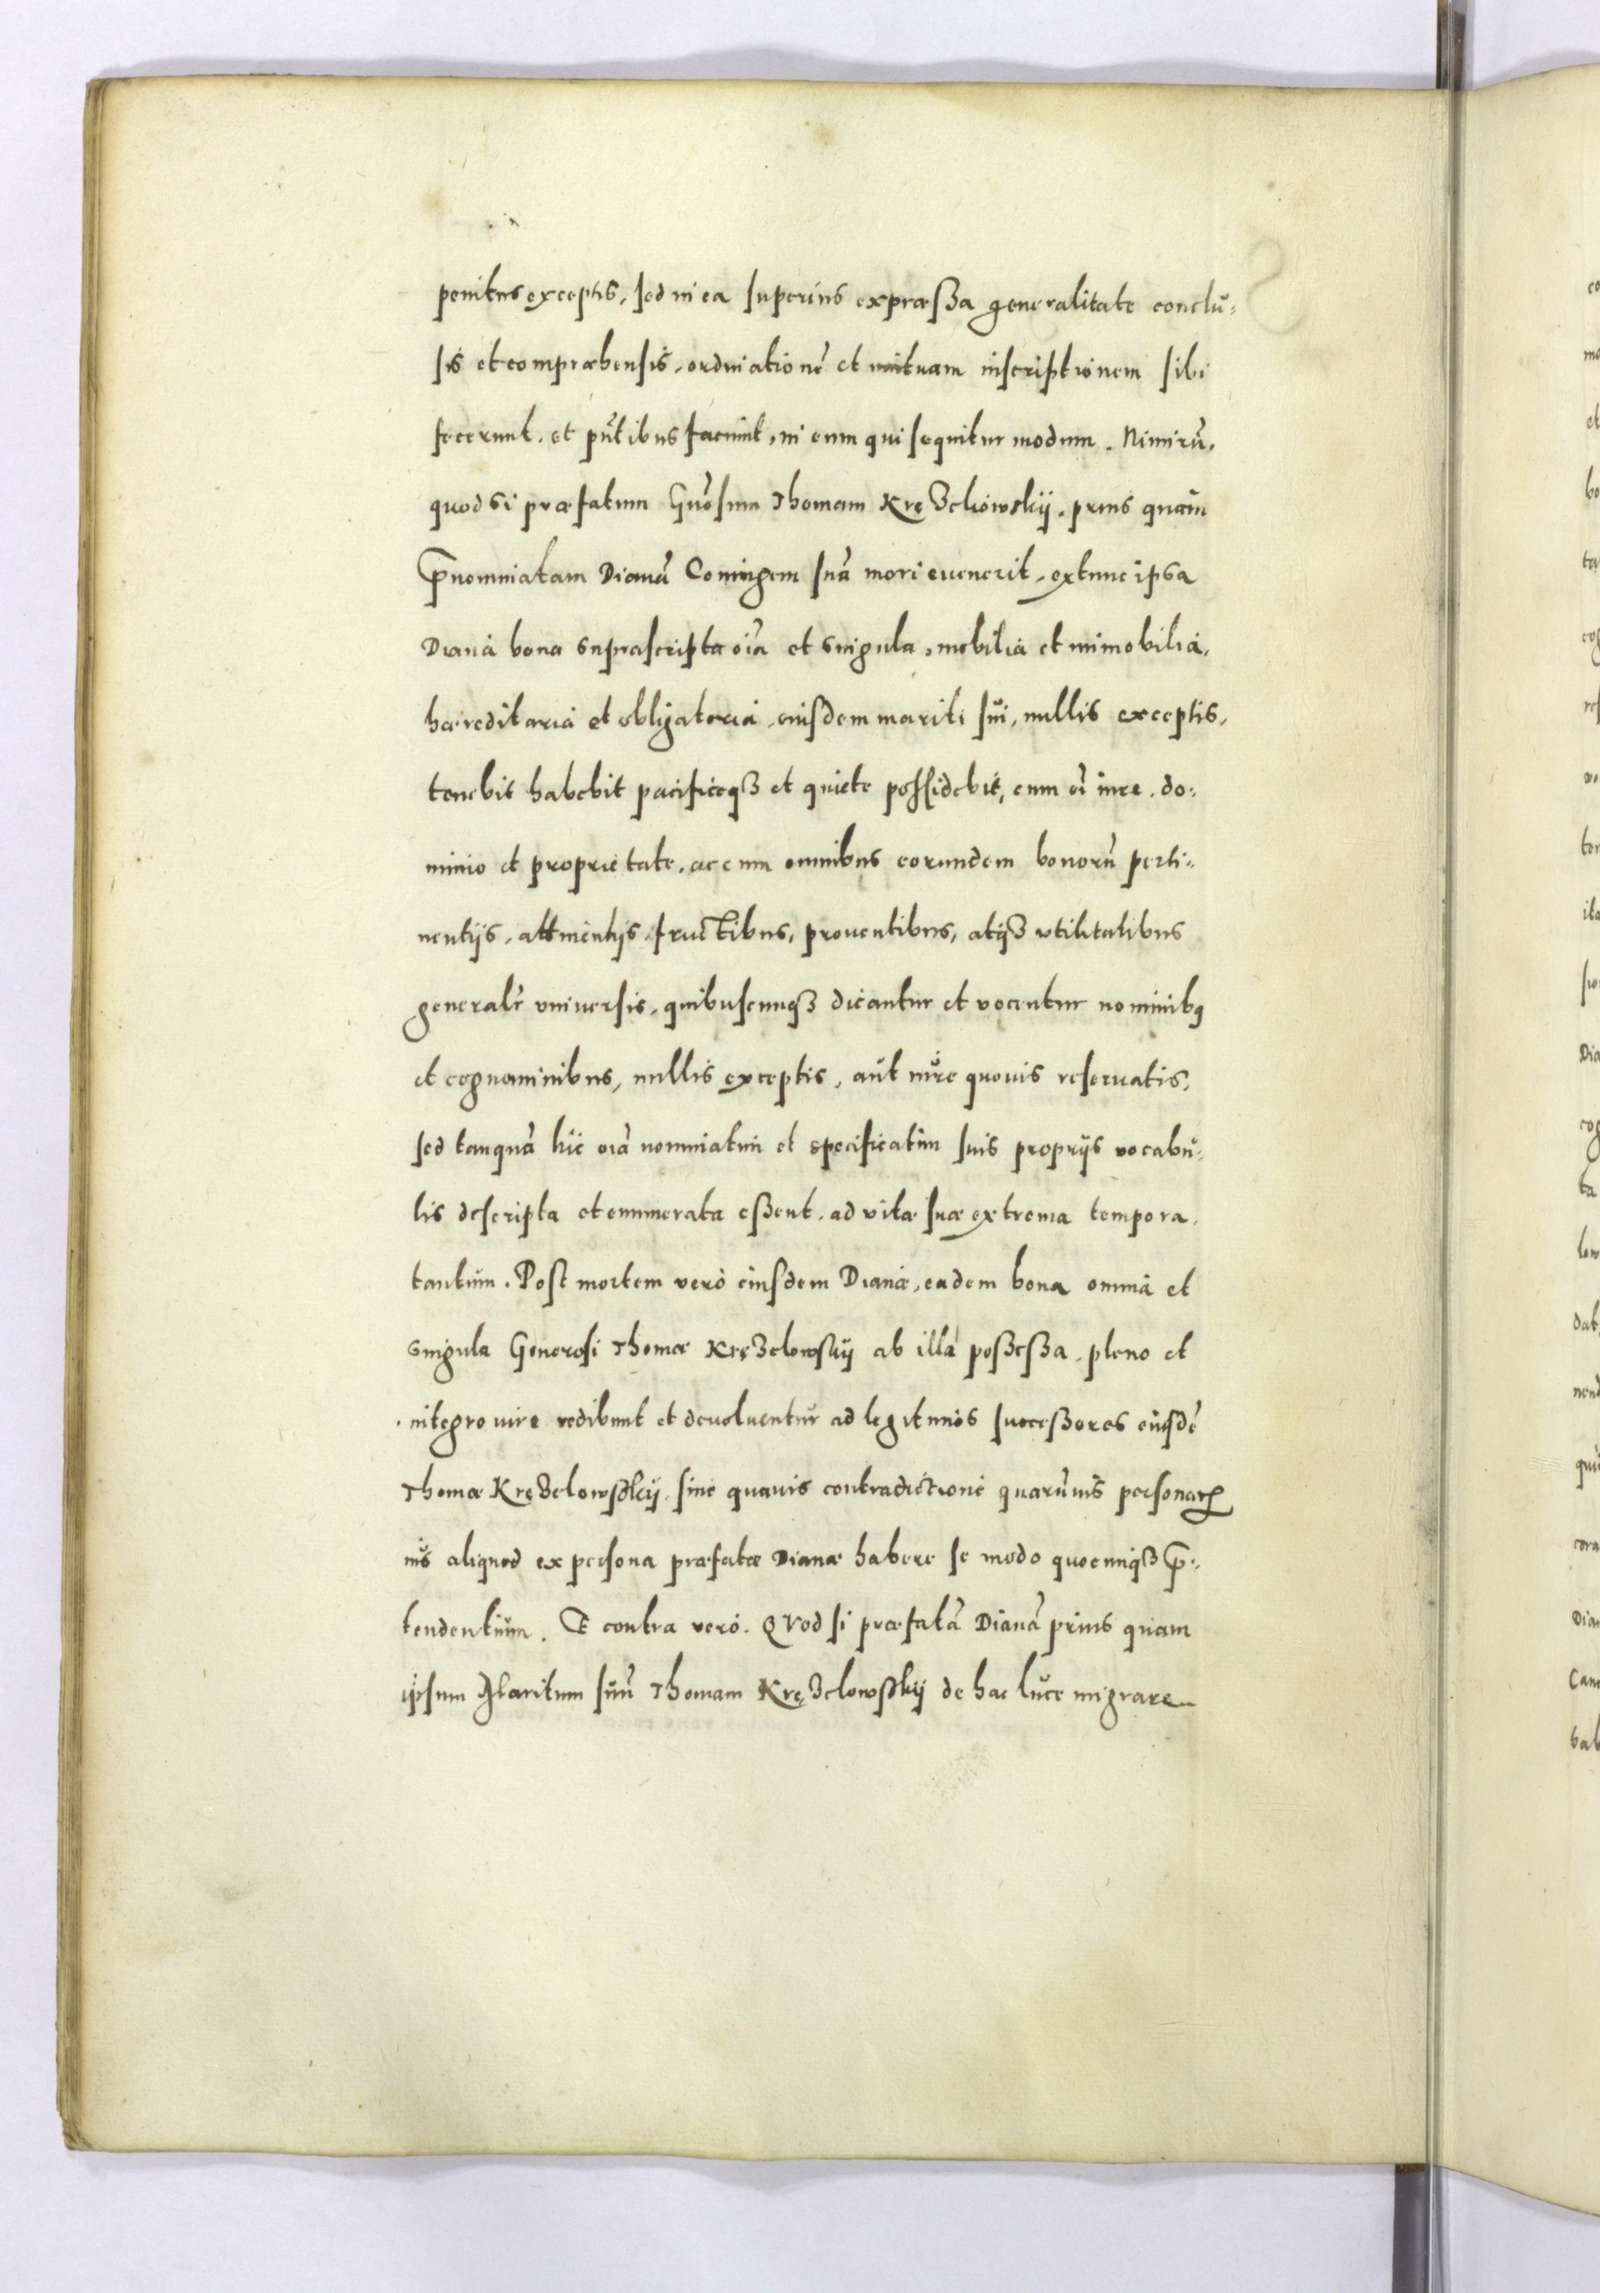 penitus exceptis, sed in ea superius expræssa generalitate conclu-
sis et compræhensis, ordinationē et mutuam inscriptionem sibi
fecerunt, et pñtibus faciunt, in eum qui sequitur modum. Nimirū,
quod si præfatum Gñosum Thomam Kręzelowskij, prius quam
p̄nominatam Dianā Coniugem suā mori euenerit, extunc ipsa
Diana bona suprascripta oīa et singula, mobilia et immobilia,
hæreditaria et obligatoria, eiusdem mariti sui, nullis exceptis,
tenebit habebit pacificeqȝ et quiete possidebit, cum oī iure, do-
minio et proprietate, ac cum omnibus eorundem bonorū perti-
nentijs, attinentijs, fructibus, prouentibus, atqȝ vtilitatibus
generalr̄ vniuersis, quibuscunqȝ dicantur et vocentur nominibꝰ
et cognominibus, nullis exceptis, aut iure quouis reseruatis,
sed tanquā hic oīa nominatim et specificatim suis proprijs vocabu-
lis descripta et enumerata essent, ad vitæ suæ extrema tempora
tantum. Post mortem verò eiusdem Dianæ, eadem bona omnia et
singula Generosi Thomæ Kręzelowskij ab illa possessa, pleno et
integro iure redibunt et deuoluentur ad legitimos successores eiusdē
Thomæ Kręzelowskij, sine quauis contradictione quarumuis personarꝝ
ius aliquod ex persona præfatæ Dianæ habere se modo quocunqȝ p̄-
tendentium. E contra verò. Quod si præfatā Dianā prius quam
ipsum Maritum suū Thomam Kręzelowskij de hac luce migrare